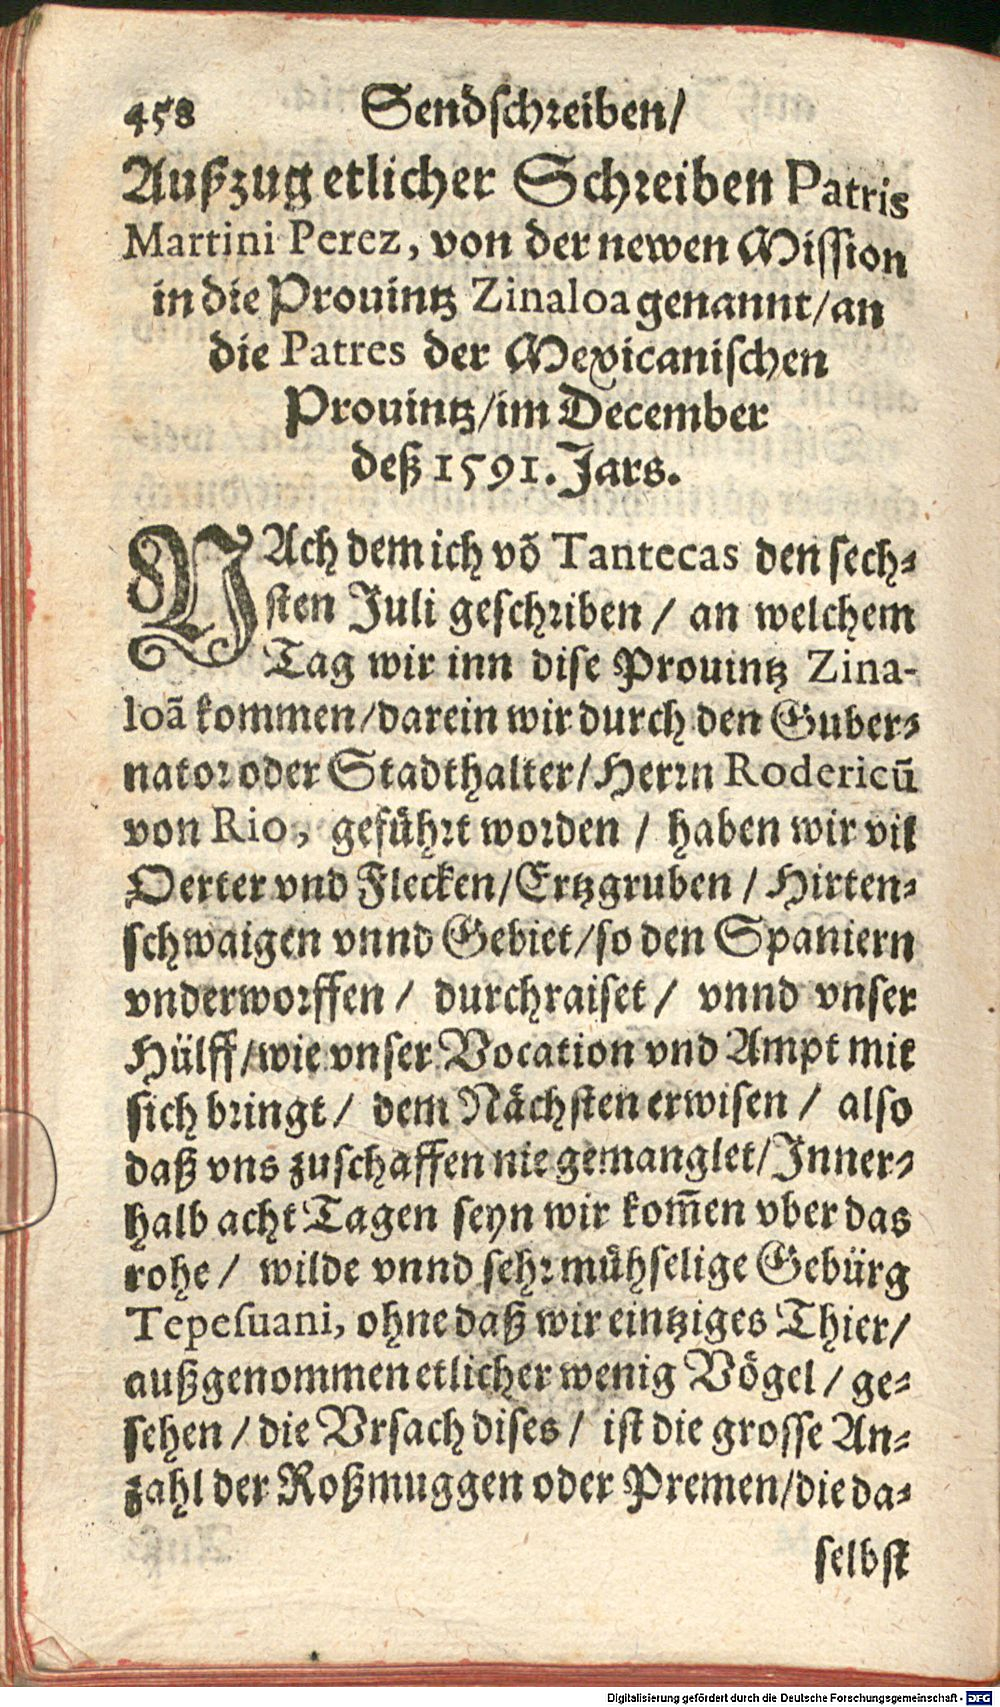 458 Sendschreiben/
Außzug etlicher Schreiben Patris
Martini Perez, von der newen Mission
in die Prouintz Zinaloa genannt/an
die Patres der Mexicanischen
Prouintz/im December
deß 1591. Jars.
NAch dem ich võ Tantecas den sech⸗
sten Juli geschriben / an welchem
Tag wir inn dise Prouintz Zina-
loã kommen/darein wir durch den Guber⸗
nator oder Stadthalter/Herrn Rodericũ
von Rio, geführt worden / haben wir vil
Oerter vnd Flecken/Ertzgruben / Hirten⸗
schwaigen vnnd Gebiet/so den Spaniern
vnderworffen / durchraiset / vnnd vnser
Hülff/wie vnser Vocation vnd Ampt mit
sich bringt / dem Nächsten erwisen / also
daß vns zuschaffen nie gemanglet/Inner⸗
halb acht Tagen seyn wir kom̃en vber das
rohe / wilde vnnd sehr mühselige Gebürg
Tepesuani, ohne daß wir eintziges Thier/
außgenommen etlicher wenig Vögel / ge⸗
sehen / die Vrsach dises / ist die grosse An⸗
zahl der Roßmuggen oder Premen/die da⸗
selbst
Digitalisierung gefördert durch die Deutsche Forschungsgemeinschaft - DFG